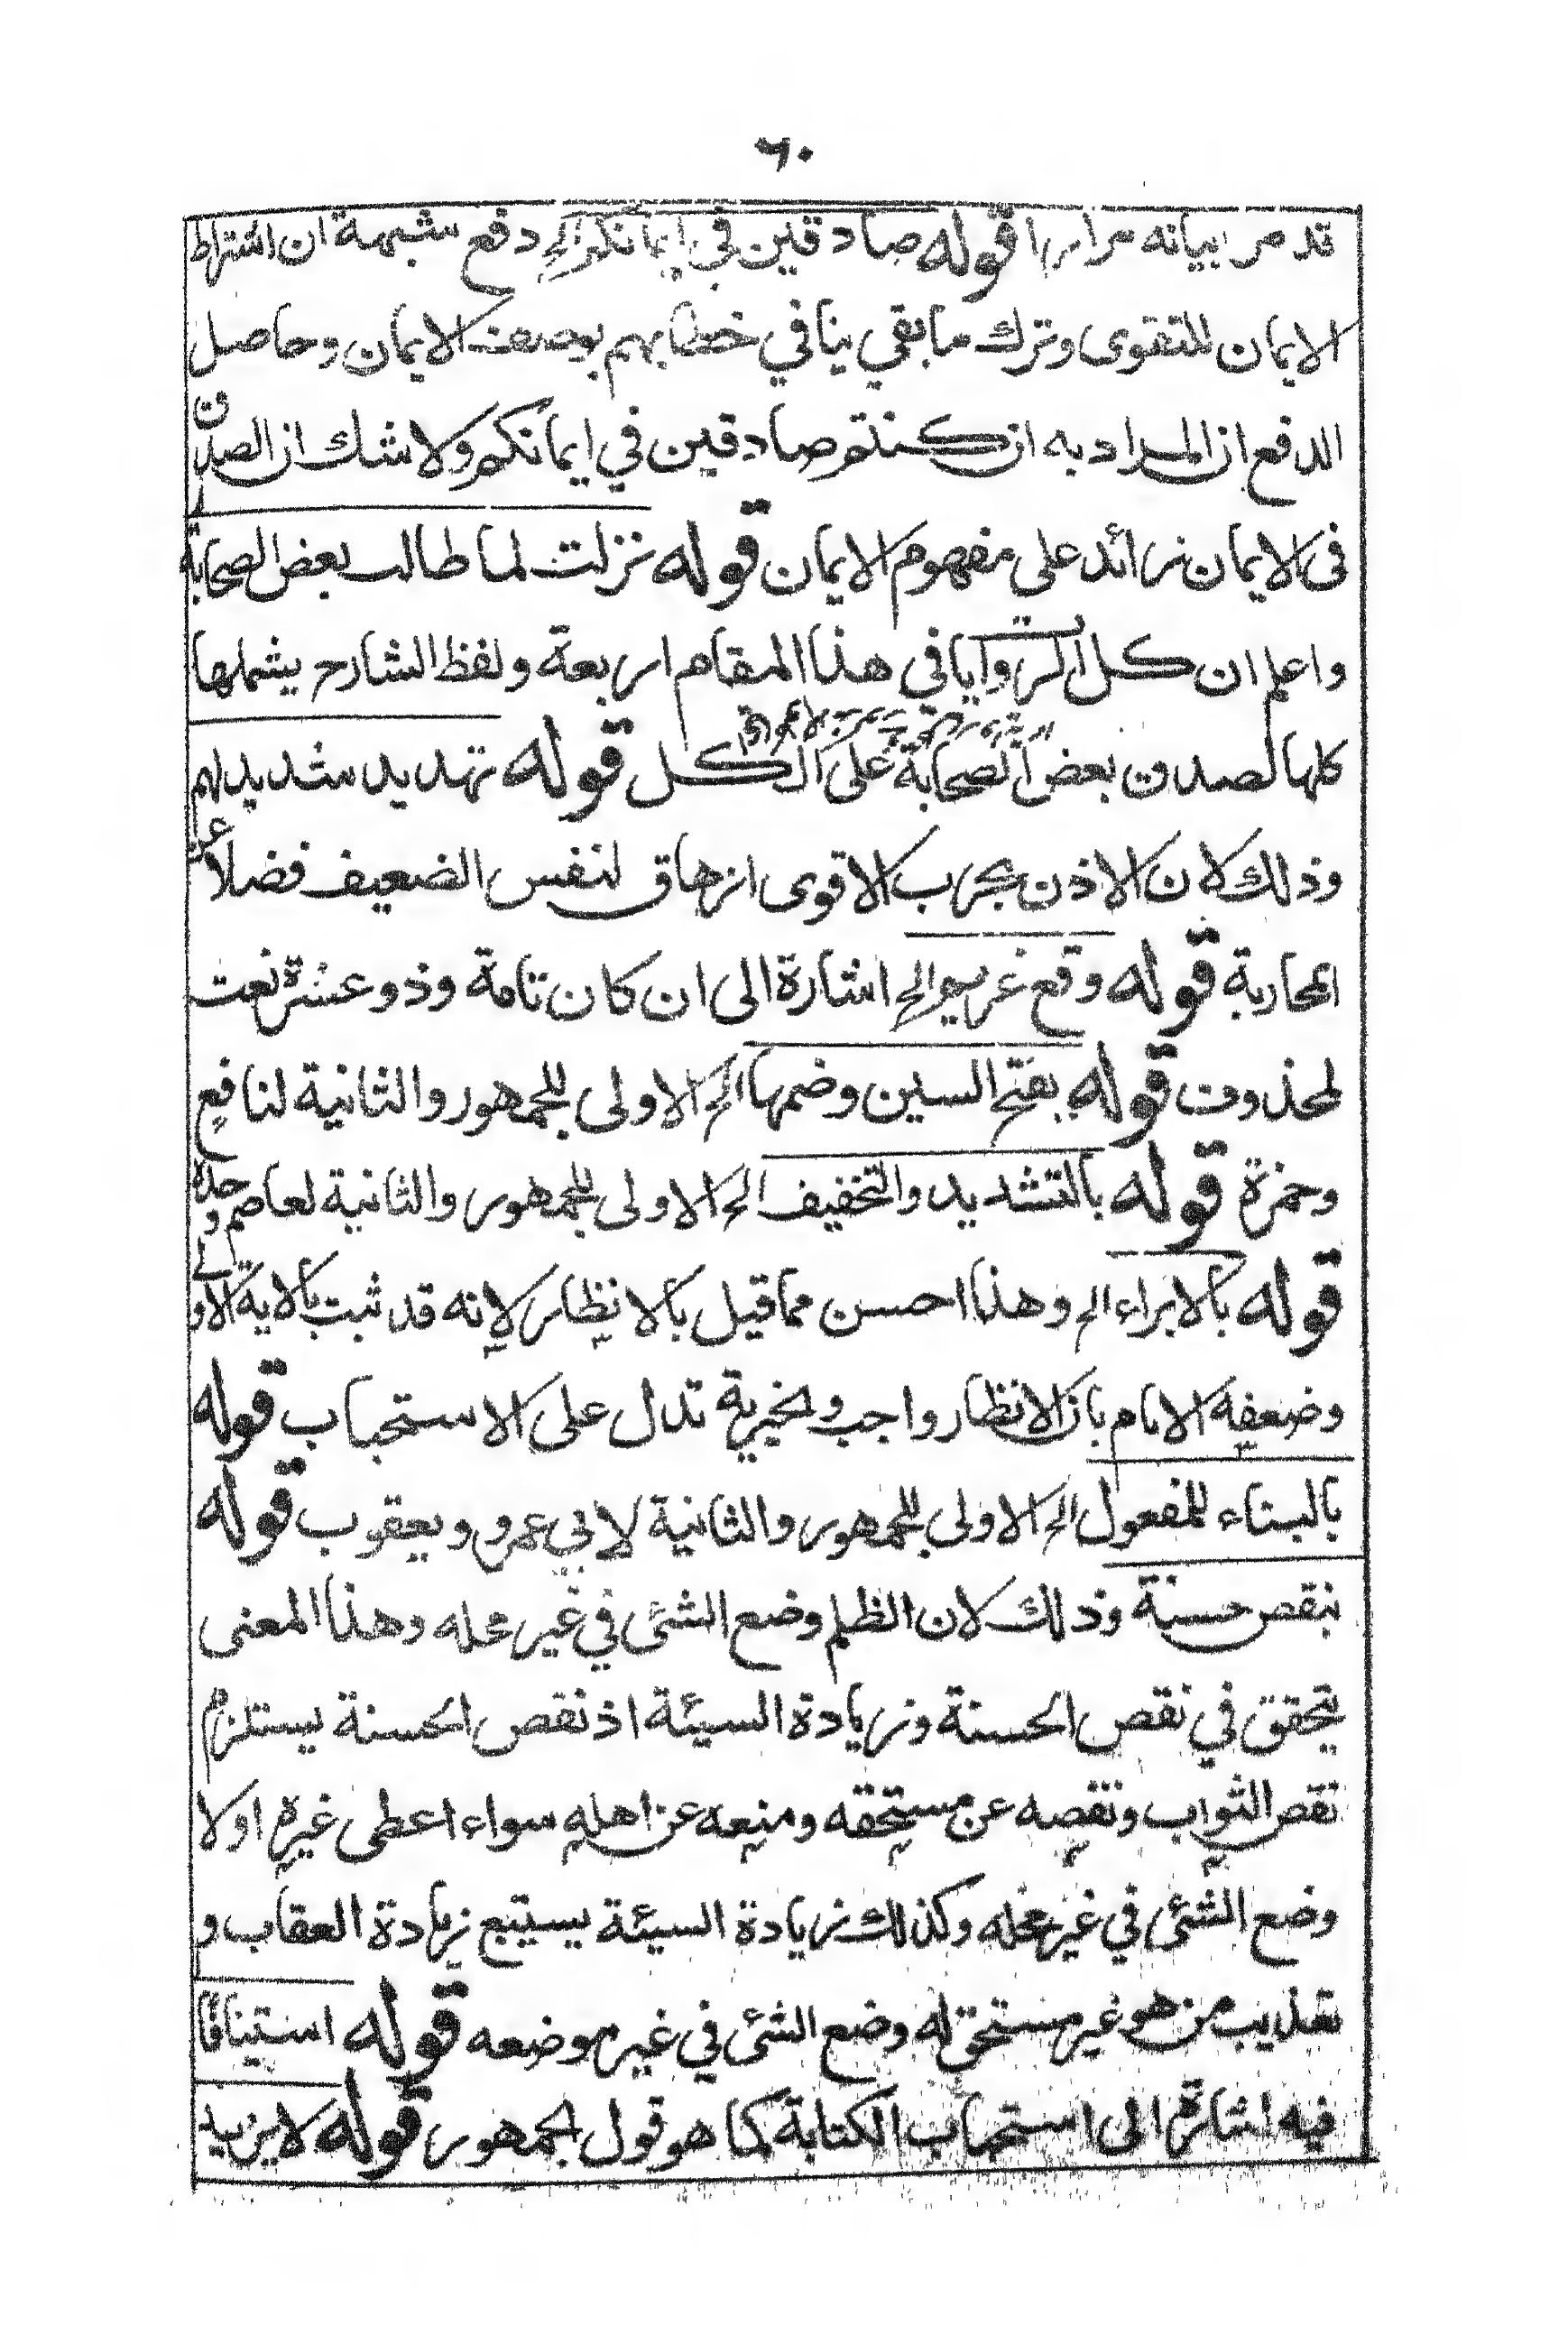 ٦٠
قد مر بيانه مرارا قوله صادقين في ايمانكم الخ دفع شبهة ان اشتراط
الايمان للتقوى وترك مابقي ينافي خطابهم بوصف الايمان وحاصل
الدفع ان المراد به ان كنتم صادقين في ايمانكم ولاشك ان الصدق
فى الايمان زائد على مفهوم الايمان قوله نزلت لما طالب بعض الصحابة
واعلم ان كل الروايا في هذا المقام اربعة ولفظ الشارح يشملها
كلها لصدق بعض الصحابة على الكل قوله تهديد شديد لهم
وذلك لان الاذن بحرب الاقوى ازهاق لنفس الضعيف فضلا عن
المحاربة قوله وقع غريم الخ اشارة الى ان كان تامة وذو عسرة نعت
لمحذوف قوله بفتح السين وضمها الخ الاولى للجمهور والثانية لنافع
وحمزة قوله بالتشديد والتخفيف الخ الاولى للجمهور والثانية لعاصم وحده
قوله بالابراء الخ وهذا احسن مما قيل بالانظار لانه قد ثبت بالاية الاولى
وضعفه الامام بان الانظار واجب والخيرية تدل على الاستحباب قوله
بالبناء للمفعول الخ الاولى للجمهور والثانية لابي عمرو ويعقوب قوله
بنقص حسنة وذلك لان الظلم وضع الشئ في غير محله وهذا المعنى
يتحقق في نقص الحسنة وزيادة السيئة اذ نقص الحسنة يستلزم
نقص الثواب ونقصه عن مستحقه ومنعه عن اهله سواء اعطى غيره اولا
وضع الشئ في غير محله وكذلك زيادة السيئة يستتبع زيادة العقاب و
تعذيب من هو غير مستحق له وضع الشئ في غير موضعه قوله استيناقا
فيه اشارة الى استحباب الكتابة كما هو قول الجمهور قوله لايزيد